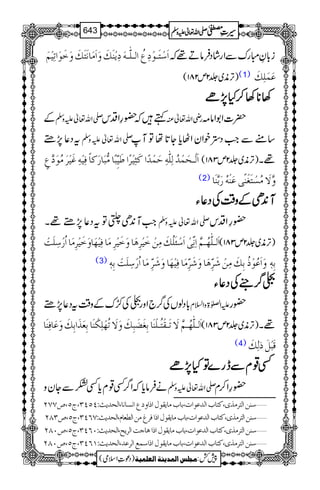 سیرت مصطفیٰ صلی اللہ تعالیٰ علیہ وسلم 643
زبان مبارک سے ارشاد فرماتے تھے کہ اَسْتَوْدِعُ اللّٰهَ دِیْنَكَ وَاَمَانَتَكَ وَخَوَاتِیْمَ
عَمَلِكَ (1) (ترمذی جلد ۲ ص ۱۸۲)
کھانا کھا کر کیا پڑھے
حضرت ابو امامہ رضی اللہ تعالیٰ عنہ کہتے ہیں کہ حضور اقدس صلی اللہ تعالیٰ علیہ وسلم کے
سامنے سے جب دسترخوان اٹھایا جاتا تھا تو آپ صلی اللہ تعالیٰ علیہ وسلم یہ دعا پڑھتے
تھے۔ (ترمذی جلد ۲ ص ۱۸۳) اَلْحَمْدُ لِلّٰهِ حَمْدًا كَثِیْرًا طَیِّبًا مُّبَارَكًا فِیْهِ غَیْرَ مُوَدَّعٍ
وَّلَا مُسْتَغْنًی عَنْهُ رَبَّنَا (2)
آندھی کے وقت کی دعاء
حضور اقدس صلی اللہ تعالیٰ علیہ وسلم جب آندھی چلتی تو یہ دعاء پڑھتے تھے۔
(ترمذی جلد ۲ ص ۱۸۳) اَللّٰهُمَّ اِنِّیْ اَسْئَلُكَ مِنْ خَیْرِهَا وَخَیْرِ مَا فِیْهَا وَخَیْرِ مَا اُرْسِلَتْ
بِهٖ وَاَعُوْذُ بِكَ مِنْ شَرِّهَا وَشَرِّ مَا فِیْهَا وَشَرِّ مَا اُرْسِلَتْ بِهٖ (3)
بجلی گرجنے کی دعاء
حضور علیہ الصلوۃ والسلام بادلوں کی گرج اور بجلی کی کڑک کے وقت یہ دعاء پڑھتے
تھے۔ (ترمذی جلد ۲ ص ۱۸۳) اَللّٰهُمَّ لَا تَقْتُلْنَا بِغَضَبِكَ وَلَا تُهْلِكْنَا بِعَذَابِكَ وَعَافِنَا
قَبْلَ ذٰلِكَ (4)
کسی قوم سے ڈرے تو کیا پڑھے
حضور اکرم صلی اللہ تعالیٰ علیہ وسلم نے فرمایا ہے کہ اگر کسی قوم یا کسی لشکر سے جان و
سنن الترمذی، کتاب الدعوات، باب مایقول اذا ودع انسانا، الحدیث: ٣٤٥٤، ج٥، ص ٢٧٧
سنن الترمذی، کتاب الدعوات، باب مایقول اذا فرغ من الطعام، الحدیث: ٣٤٦٧، ج٥، ص ٢٨٣
سنن الترمذی، کتاب الدعوات، باب مایقول اذا هاجت الریح، الحدیث: ٣٤٦٠، ج٥، ص ٢٨٠
سنن الترمذی، کتاب الدعوات، باب مایقول اذا سمع الرعد، الحدیث: ٣٤٦١، ج٥، ص ٢٨٠
پیش کش: مجلس المدینة العلمیة (دعوت اسلامی)